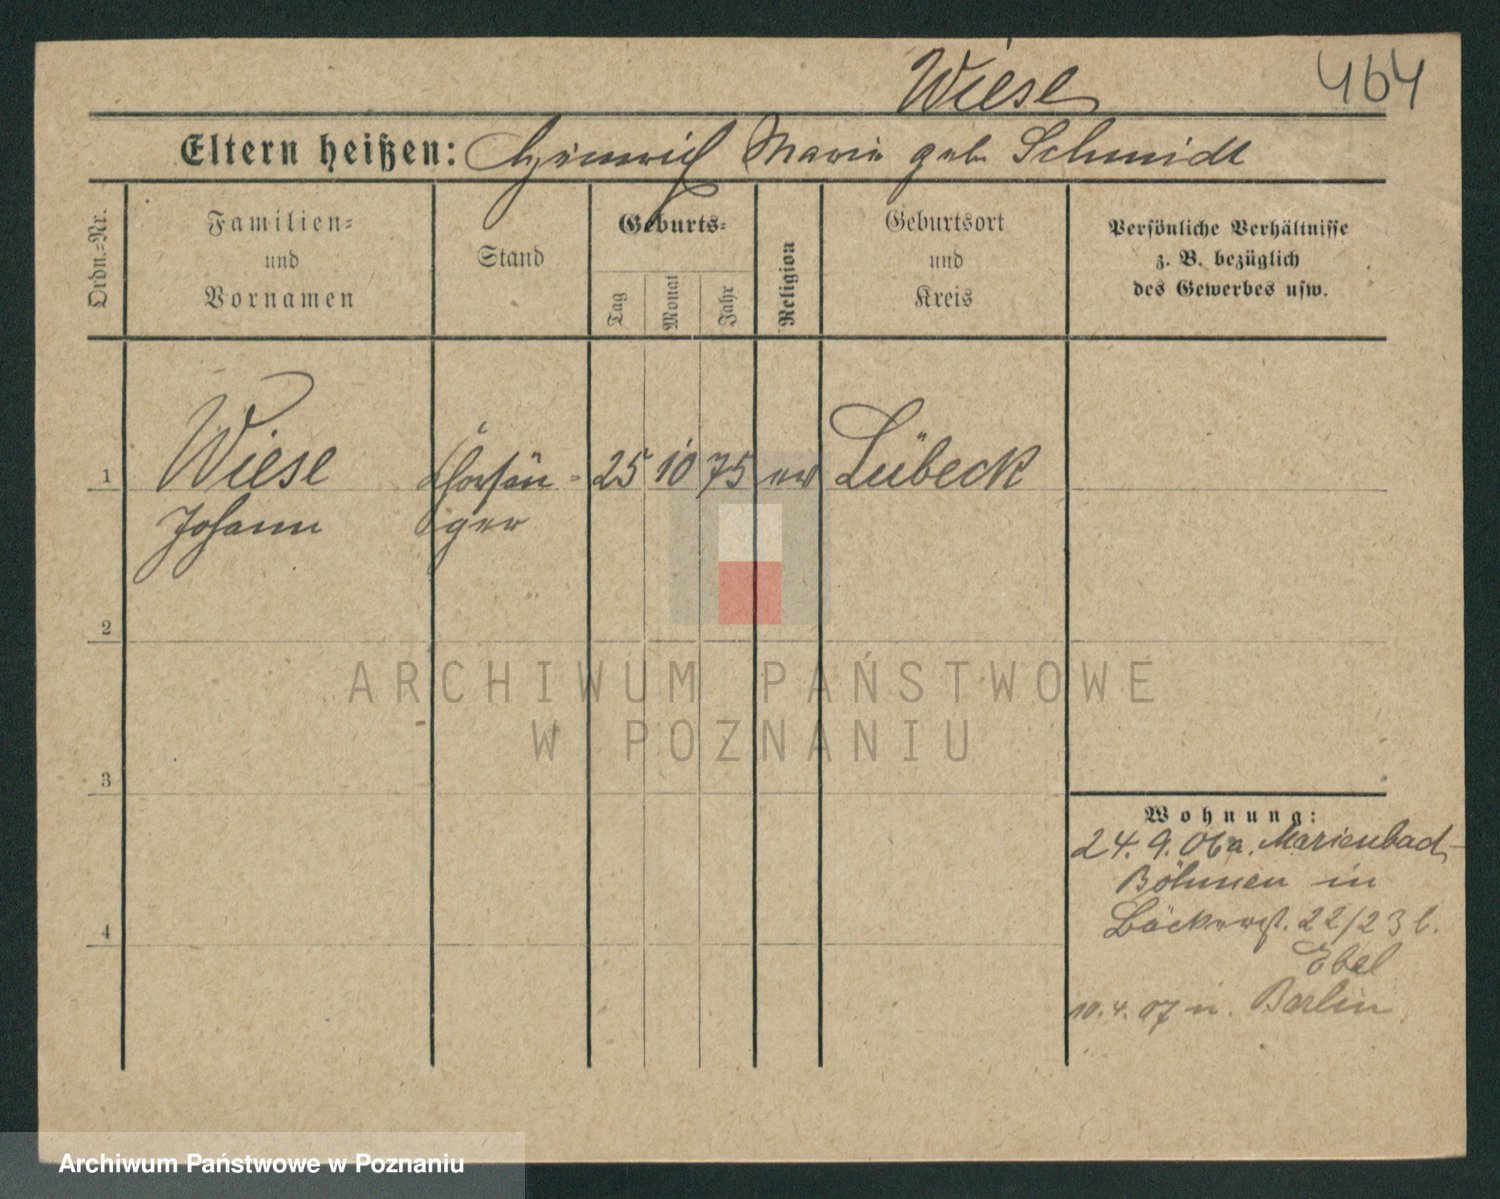 Wiese
464
Eltern heißen: Heinrich Marie geb Schmidt
Ordn.-Nr.
Familien-
und
Vornamen
Stand
Geburts-
Tag
Monat
Jahr
Religion
Geburtsort
und
Kreis
Persönliche Verhältnisse
z. B. bezüglich
des Gewerbes usw.
1 Wiese Chorsän- 25 10 75 ev Lübeck
Johann ger
2
ARCHIWUM PAŃSTWOWE
W POZNANIU
3
Wohnung:
24. 9. 06 a. Marienbad
Böhmen in
Bäckerst. 22/23 b.
4
Ebel
10. 4. 07 n. Berlin
Archiwum Państwowe w Poznaniu